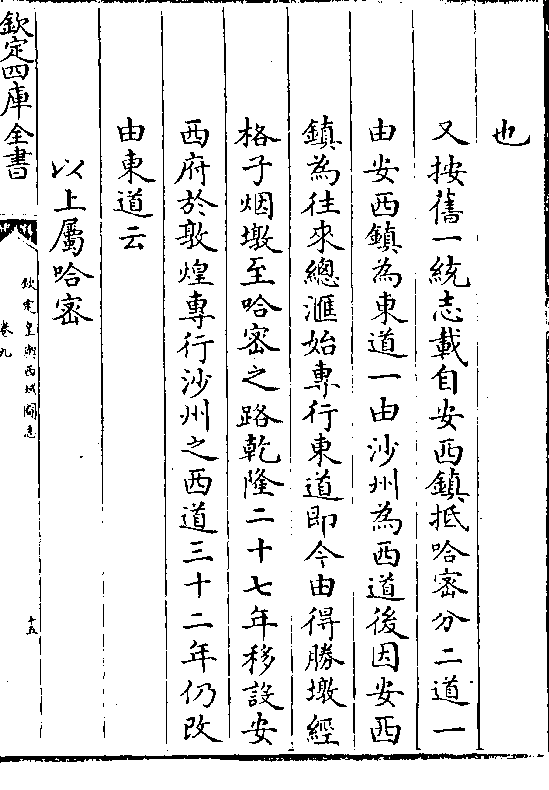 也
又按舊一統志載自安西鎮抵哈密分二道一
由安西鎮為東道一由沙州為西道後因安西
鎮為往來總滙始專行東道即今由得勝墩經
格子烟墩至哈密之路乾隆二十七年移設安
西府於敦煌專行沙州之西道三十二年仍改
由東道云
以上屬哈密
欽定四庫全書
欽定皇輿西域圖志
卷九
十五